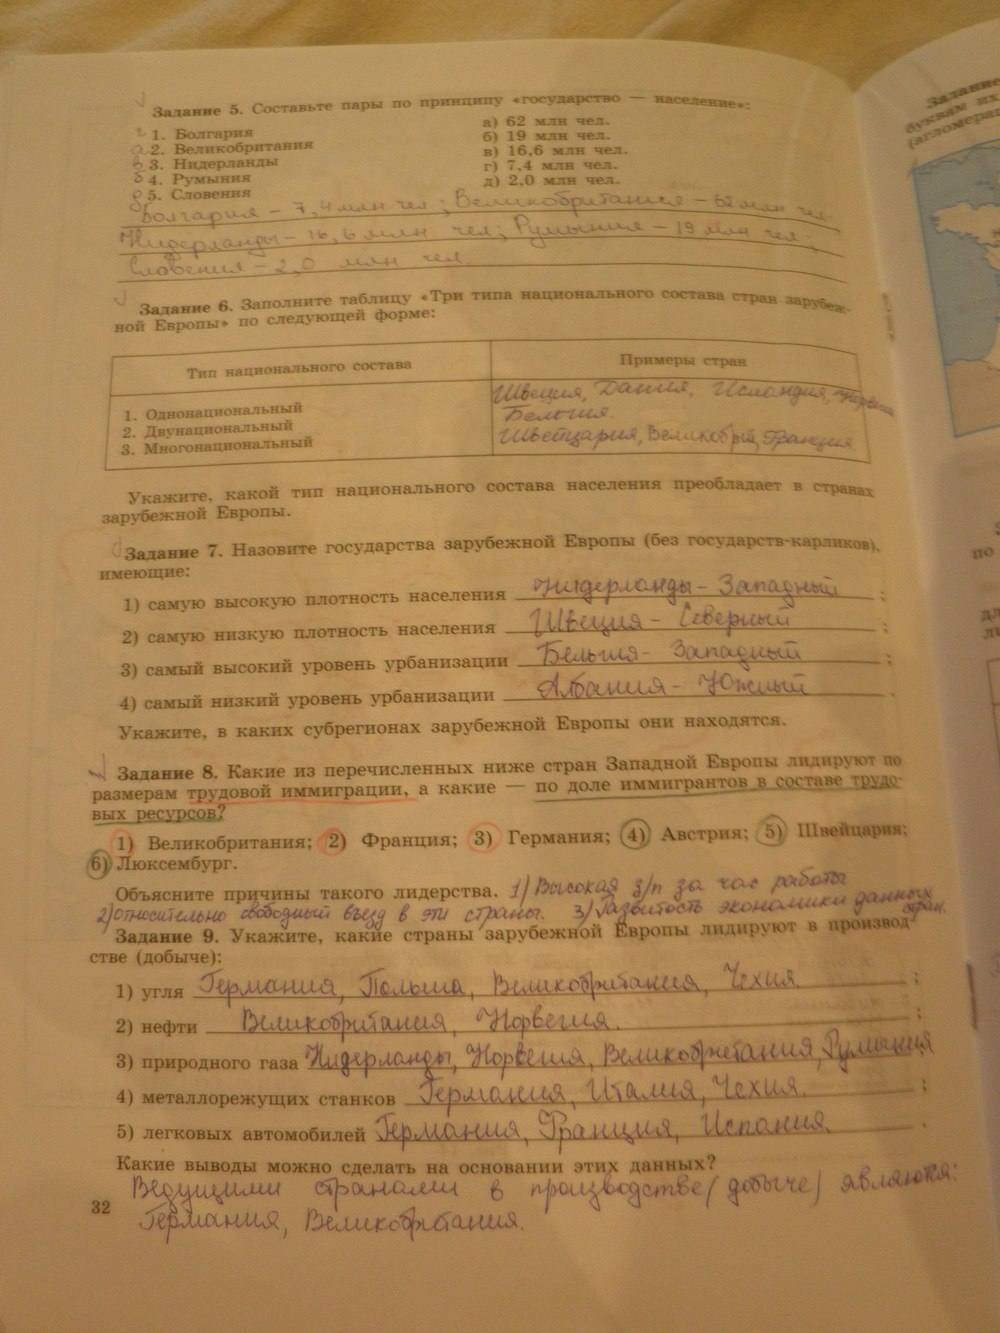 Задание 5. Составьте пары по принципу «государство — население»:
1. Болгария а) 62 млн чел.
2. Великобритания б) 19 млн чел.
3. Нидерланды в) 16,6 млн чел.
4. Румыния г) 7,4 млн чел.
5. Словения д) 2,0 млн чел.
Болгария – 7,4 млн чел; Великобритания – 62 млн чел
Нидерланды – 16,6 млн чел; Румыния – 19 млн чел
Словения – 2,0 млн чел.
Задание 6. Заполните таблицу «Три типа национального состава стран зарубеж-
ной Европы» по следующей форме:
Тип национального состава Примеры стран
1. Однонациональный Швеция, Дания, Исландия, Норвегия
2. Двунациональный Бельгия.
3. Многонациональный Швейцария, Великобрит, Франция
Укажите, какой тип национального состава населения преобладает в странах
зарубежной Европы.
Задание 7. Назовите государства зарубежной Европы (без государств-карликов),
имеющие:
1) самую высокую плотность населения Нидерланды – Западный ;
2) самую низкую плотность населения Швеция – Северный ;
3) самый высокий уровень урбанизации Бельгия – Западный ;
4) самый низкий уровень урбанизации Албания – Южный .
Укажите, в каких субрегионах зарубежной Европы они находятся.
Задание 8. Какие из перечисленных ниже стран Западной Европы лидируют по
размерам трудовой иммиграции, а какие — по доле иммигрантов в составе трудо-
вых ресурсов?
1) Великобритания; 2) Франция; 3) Германия; 4) Австрия; 5) Швейцария;
6) Люксембург.
Объясните причины такого лидерства. 1) Высокая з/п за час работы
2) относительно свободный въезд в эти страны. 3) Развитость экономики данных
стран.
Задание 9. Укажите, какие страны зарубежной Европы лидируют в производ-
стве (добыче):
1) угля Германия, Польша, Великобритания, Чехия. ;
2) нефти Великобритания, Норвегия. ;
3) природного газа Нидерланды, Норвегия, Великобритания, Румыния
4) металлорежущих станков Германия, Италия, Чехия. ;
5) легковых автомобилей Германия, Франция, Испания. .
Какие выводы можно сделать на основании этих данных?
Ведущими странами в производстве (добыче) являются:
Германия, Великобритания.
32
Задание
буквам их
(агломера